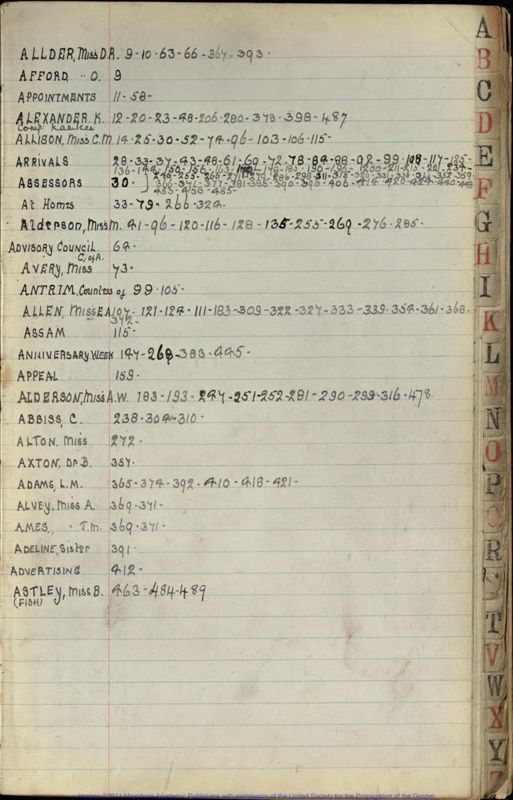 ALLDER, Miss D.R. 9-10-63-66-364-393-
AFFORD, - O. 9
APPOINTMENTS 11-58-
ALEXANDER. K. 12-20-23-48-206-280-378-398-487
ALLISON, Miss C.M. 14-25-30-52-74-96-103-106-115-
ARRIVALS 28-33-37-43-48-51-60-72-78-84-88-92-99-108-117-125-
ASSESSORS 30-
At Homes 33-79-266-324-
Alderson, Miss M. 41-96-120-116-128-135-255-269-276-285-
ADVISORY COUNCIL 64-
C. of A.
AVERY, Miss 73-
ANTRIM, Countess of 99-105-
ALLEN, Miss E.A. 107-121-124-111-183-309-322-327-333-339-354-361-368-
372-
ASSAM 115-
ANNIVERSARY WEEK 147-268-383-445-
APPEAL 159-
ALDERSON, Miss A.W. 183-193-247-251-252-281-290-299-316-478
ABBISS, C. 238-304-310-
ALTON, Miss 272-
AXTON, Dr B. 357-
ADAMS, L.M. 365-374-392-410-418-421-
ALVEY, Miss A. 369-371-
AMES, - T.M. 369-371-
ADELINE, Sister 391-
ADVERTISING 412-
ASTLEY, Miss B. 463-484-489
(FISH)
A
B
C
D
E
F
G
H
I
K
L
M
N
O
P
R
S
T
V
W
X
Y
Z
Images ©2011 Microform Academic Publishers with permission of the United Society for the Propagation of the Gospel